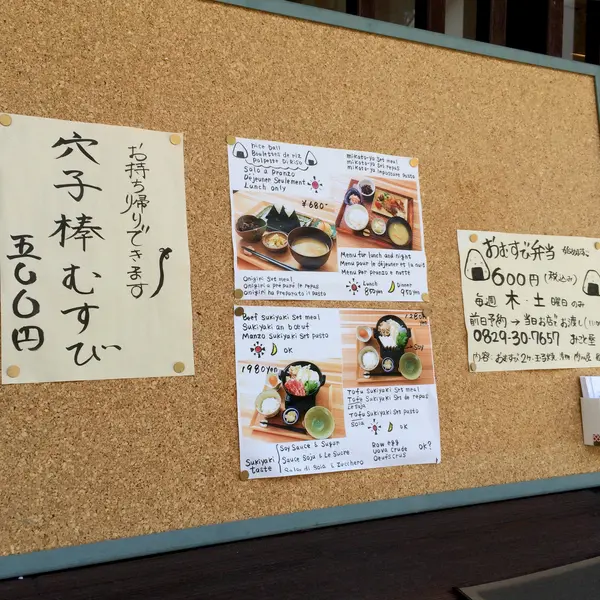 お持ち帰りできます
穴子棒むすび
五〇〇円
rice ball
Boulettes de riz
Polpette Di Riso
Solo a Pranzo
Déjeuner Seulement
Lunch only
¥680-
Onigiri set meal
Onigiri a prepare le repas
Onigiri ha preparato il pasto
mikoto-ya Set meal
mikoto-ya Set repas
Menu for lunch and dinner
Menu pour le déjeuner et la nuit
Menu Per pranzo e notte
Lunch
850yen
Dinner
950yen
Beef Sukiyaki Set meal
Sukiyaki an bœuf
Manzo Sukiyaki Set pasto
OK
1980yen
Sukiyaki taste
Soy Sauce & Sugar
Sauce Soja & Le Sucre
Salsa di Soia & Zucchero
1280yen
Soy
Tofu Sukiyaki Set meal
Tofu Sukiyaki Set de repas
Le Soja
Tofu Sukiyaki Set pasto
Soia
OK
Raw egg
uova crude
Oeufs crus
OK?
おむすび弁当
600円(税込み)
毎週 木・土 曜日のみ
前日予約→当日お店でお渡し
0829-30-7657 みこと屋
内容:おむすび2ケ、玉子焼